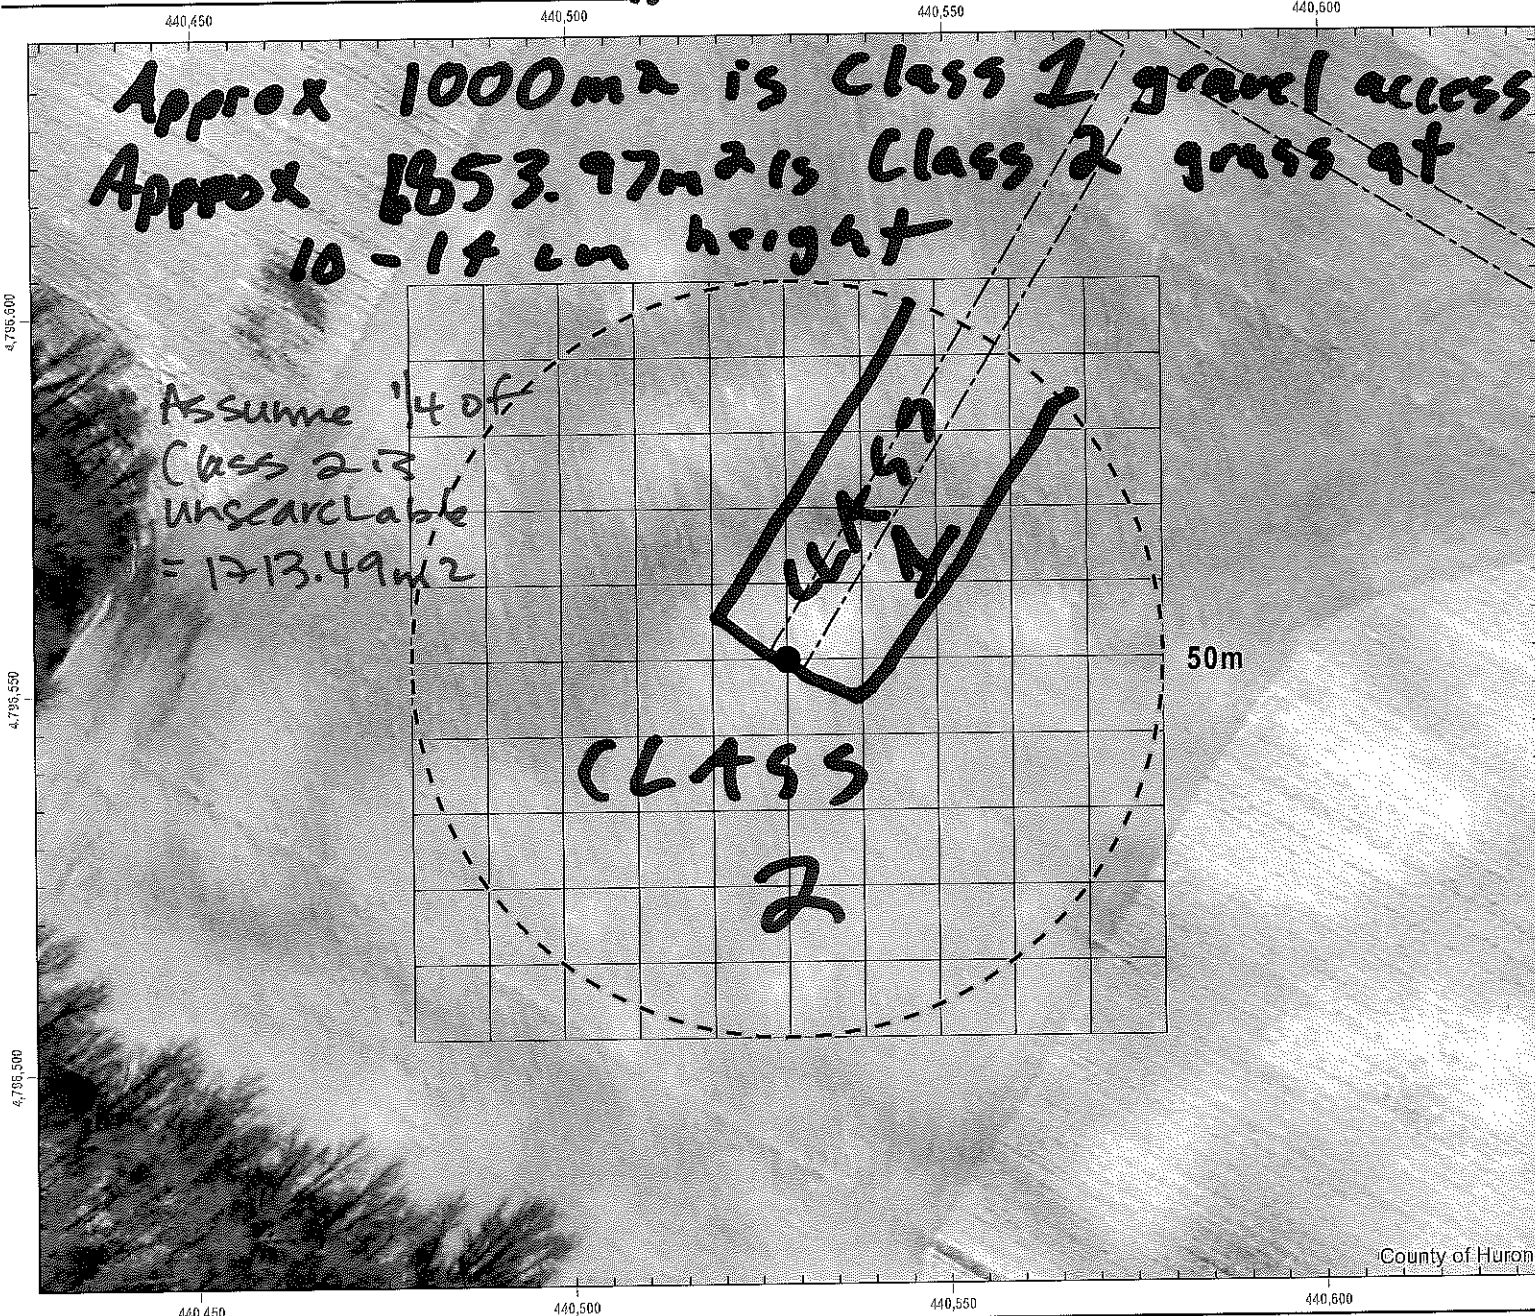 440,450 440,500 440,550 440,600
Approx 1000m2 is Class 1 gravel access
Approx 6853.97m2 is Class 2 grass at
10-14 cm height
4,795,600
Assume 1/4 of
Class 2 is
unsearchable
= 1713.49m2
50m
4,795,550
CLASS
2
4,795,500
County of Huron
440,450 440,500 440,550 440,600